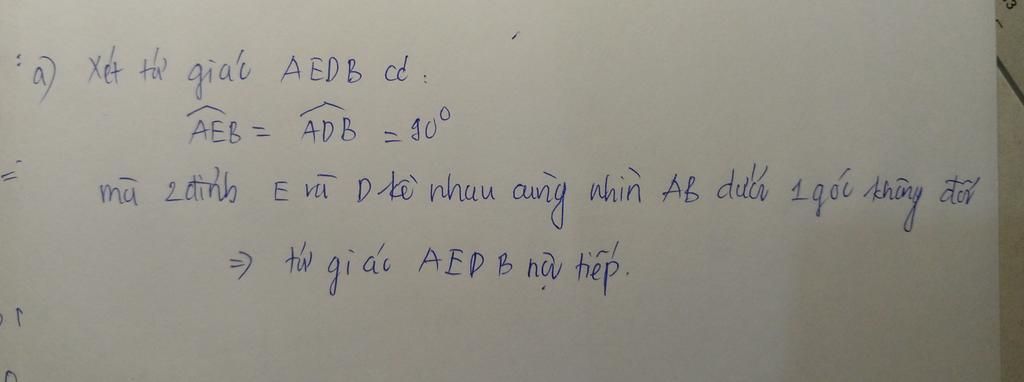 a) Xét tứ giác AEDB có :
AEB = ADB = 90⁰
mà 2 đỉnh E và D kề nhau cùng nhìn AB dưới 1 góc không đổi
=> tứ giác AEDB nội tiếp.